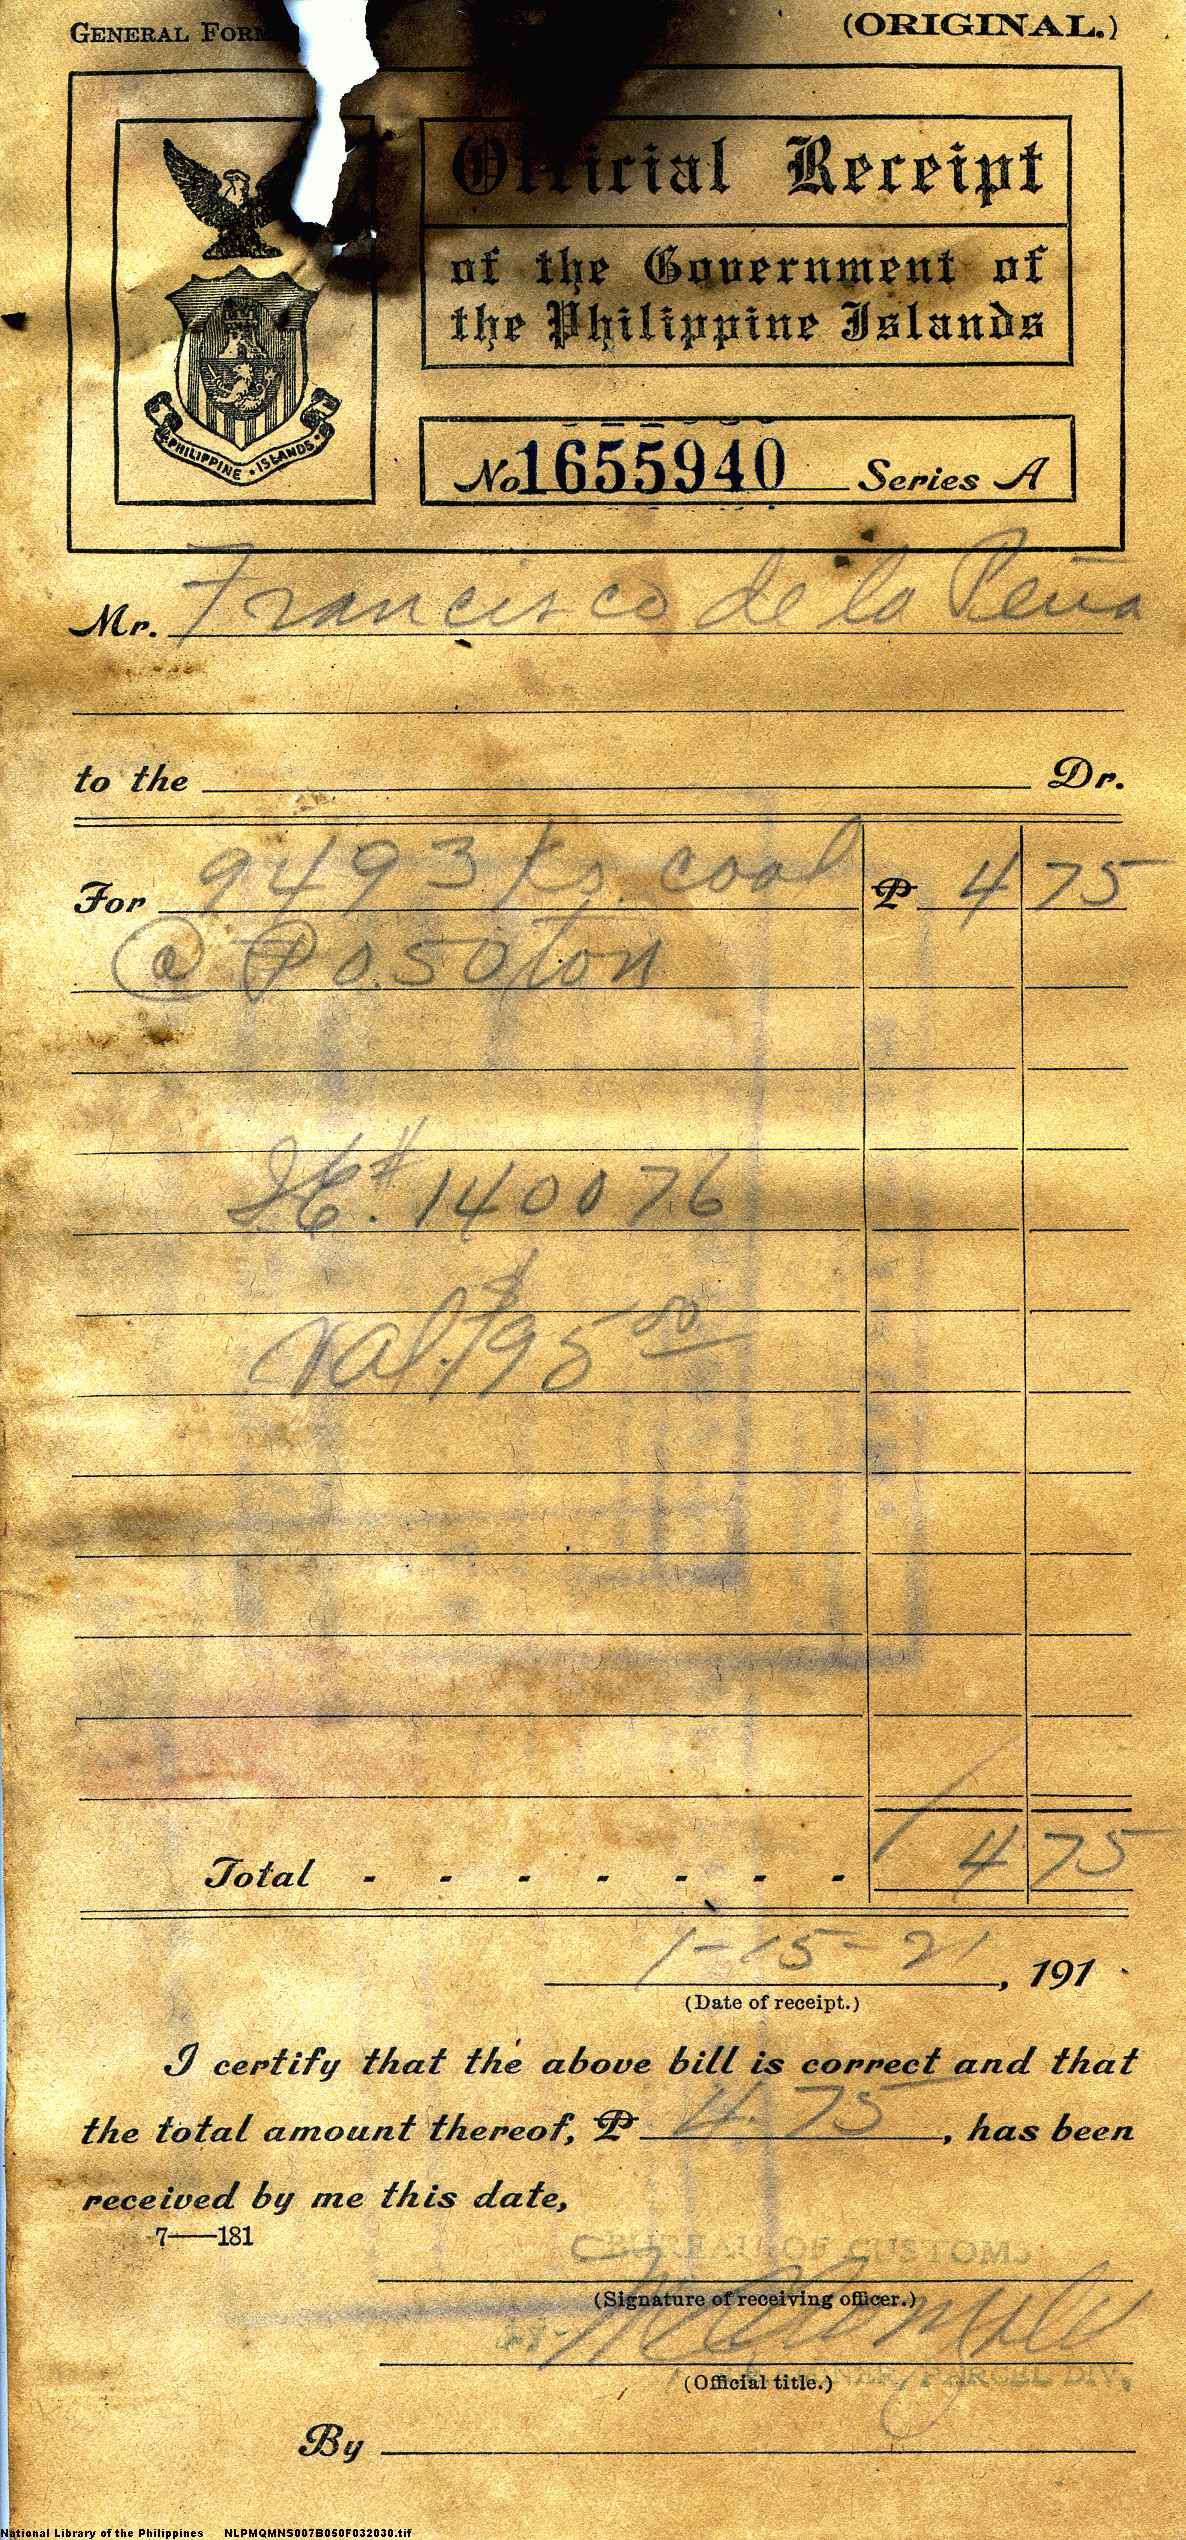 GENERAL FORM
(ORIGINAL.)
Official Receipt
of the Government of
the Philippine Islands
PHILIPPINE · ISLANDS
No. 1655940 Series A
Mr. Francisco de la Peña
to the Dr.
For 9493 ks. coal ₱ 4 75
@ ₱0.50/ton
#140076
Val. $95 00
Total - - - - - - - 4 75
1-15-21, 191
(Date of receipt.)
I certify that the above bill is correct and that
the total amount thereof, ₱ 4.75, has been
received by me this date,
7—181
BUREAU OF CUSTOMS
(Signature of receiving officer.)
PARCEL DIV.
(Official title.)
By
National Library of the Philippines NLPMQMNS007B050F032030.tif